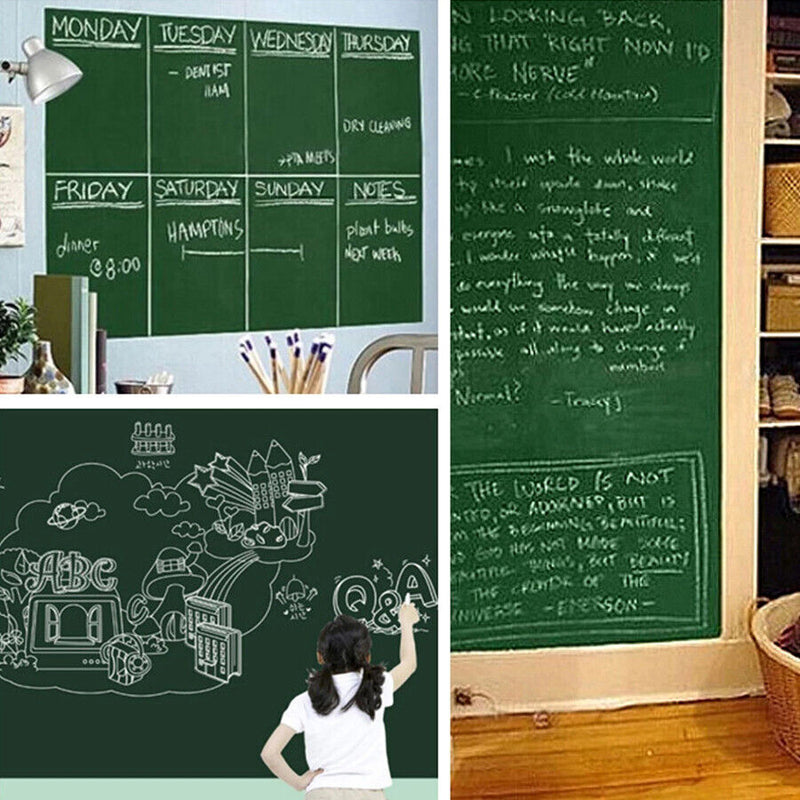 MONDAY
TUESDAY
- DENTIST
11AM
WEDNESDAY
→PTA MEETS
THURSDAY
DRY CLEANING
FRIDAY
dinner
@8:00
SATURDAY
HAMPTONS
SUNDAY
NOTES
plant bulbs
NEXT WEEK
LOOKING BACK,
THAT "RIGHT NOW I'D
NERVE"
- C. Frazier (Cold Mountain)
I wish the whole world
itself upside down, shake
up like a snowglobe and
everyone into a totally different
I wonder what'd happen, if we'd
do everything the way we always
would we somehow change in
as if it would have actually
possible all along to change
Normal?
- Tracy J
THE WORLD IS NOT
OR ADORNED, BUT IS
THE BEGINNING BEAUTIFUL;
GOD HAS NOT MADE SOME
THINGS, BUT BEAUTY
THE CREATOR OF THE
UNIVERSE - EMERSON -
과학시간
ABC
Q&A
쉬는
시간